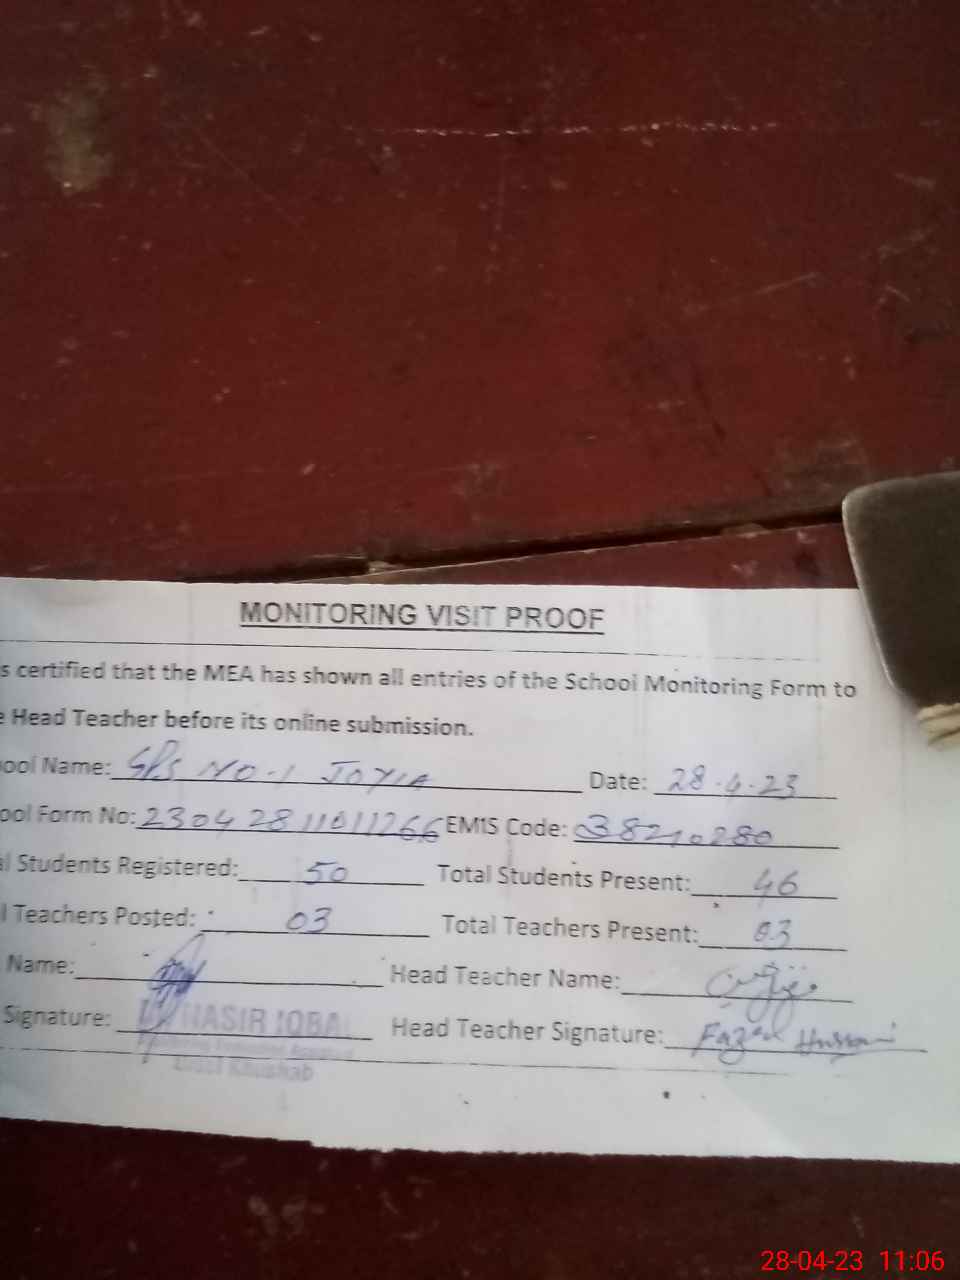 MONITORING VISIT PROOF
s certified that the MEA has shown all entries of the School Monitoring Form to
e Head Teacher before its online submission.
ool Name: GPS NO-1 JOYIA Date: 28-4-23
ool Form No: 23042811011266 EMIS Code: 38210280
al Students Registered: 50 Total Students Present: 46
l Teachers Posted: 03 Total Teachers Present: 03
Name: Head Teacher Name:
Signature: NASIR IQBA Head Teacher Signature: Fazal Hussain
Khushab
28-04-23 11:06